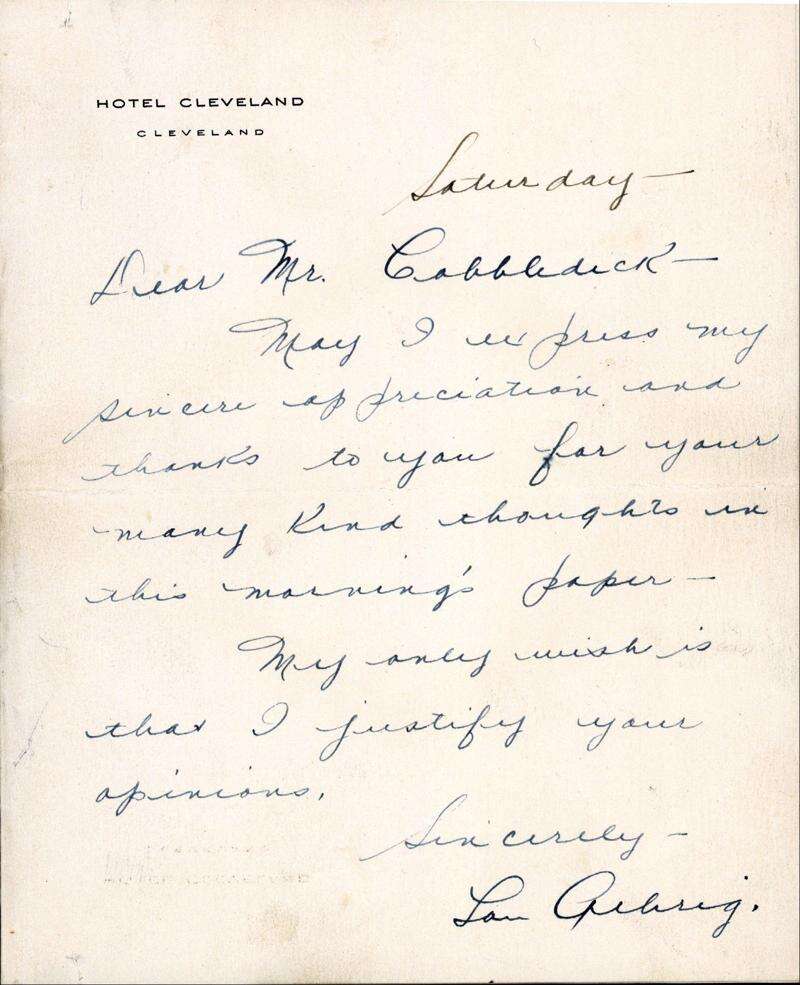 HOTEL CLEVELAND
CLEVELAND
Saturday—
Dear Mr. Cobbledick—
May I express my
sincere appreciation and
thanks to you for your
many kind thoughts in
this morning's paper—
My only wish is
that I justify your
opinions.
Sincerely—
Lou Gehrig.